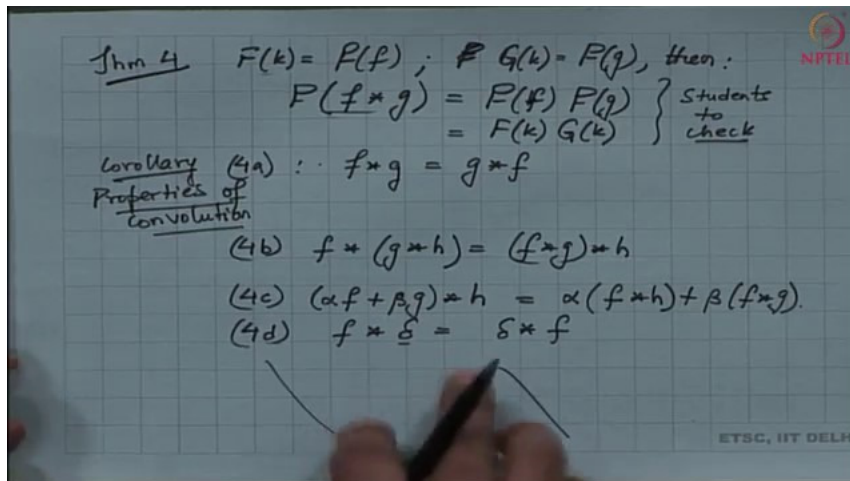 Thm 4 F(k) = F(f) ; G(k) = F(g), then :
F(f * g) = F(f) F(g)
= F(k) G(k) } Students to check
Corollary (4a) : f * g = g * f
Properties of
Convolution
(4b) f * (g * h) = (f * g) * h
(4c) (αf + βg) * h = α(f * h) + β(f * g).
(4d) f * δ = δ * f
NPTEL
ETSC, IIT DELH